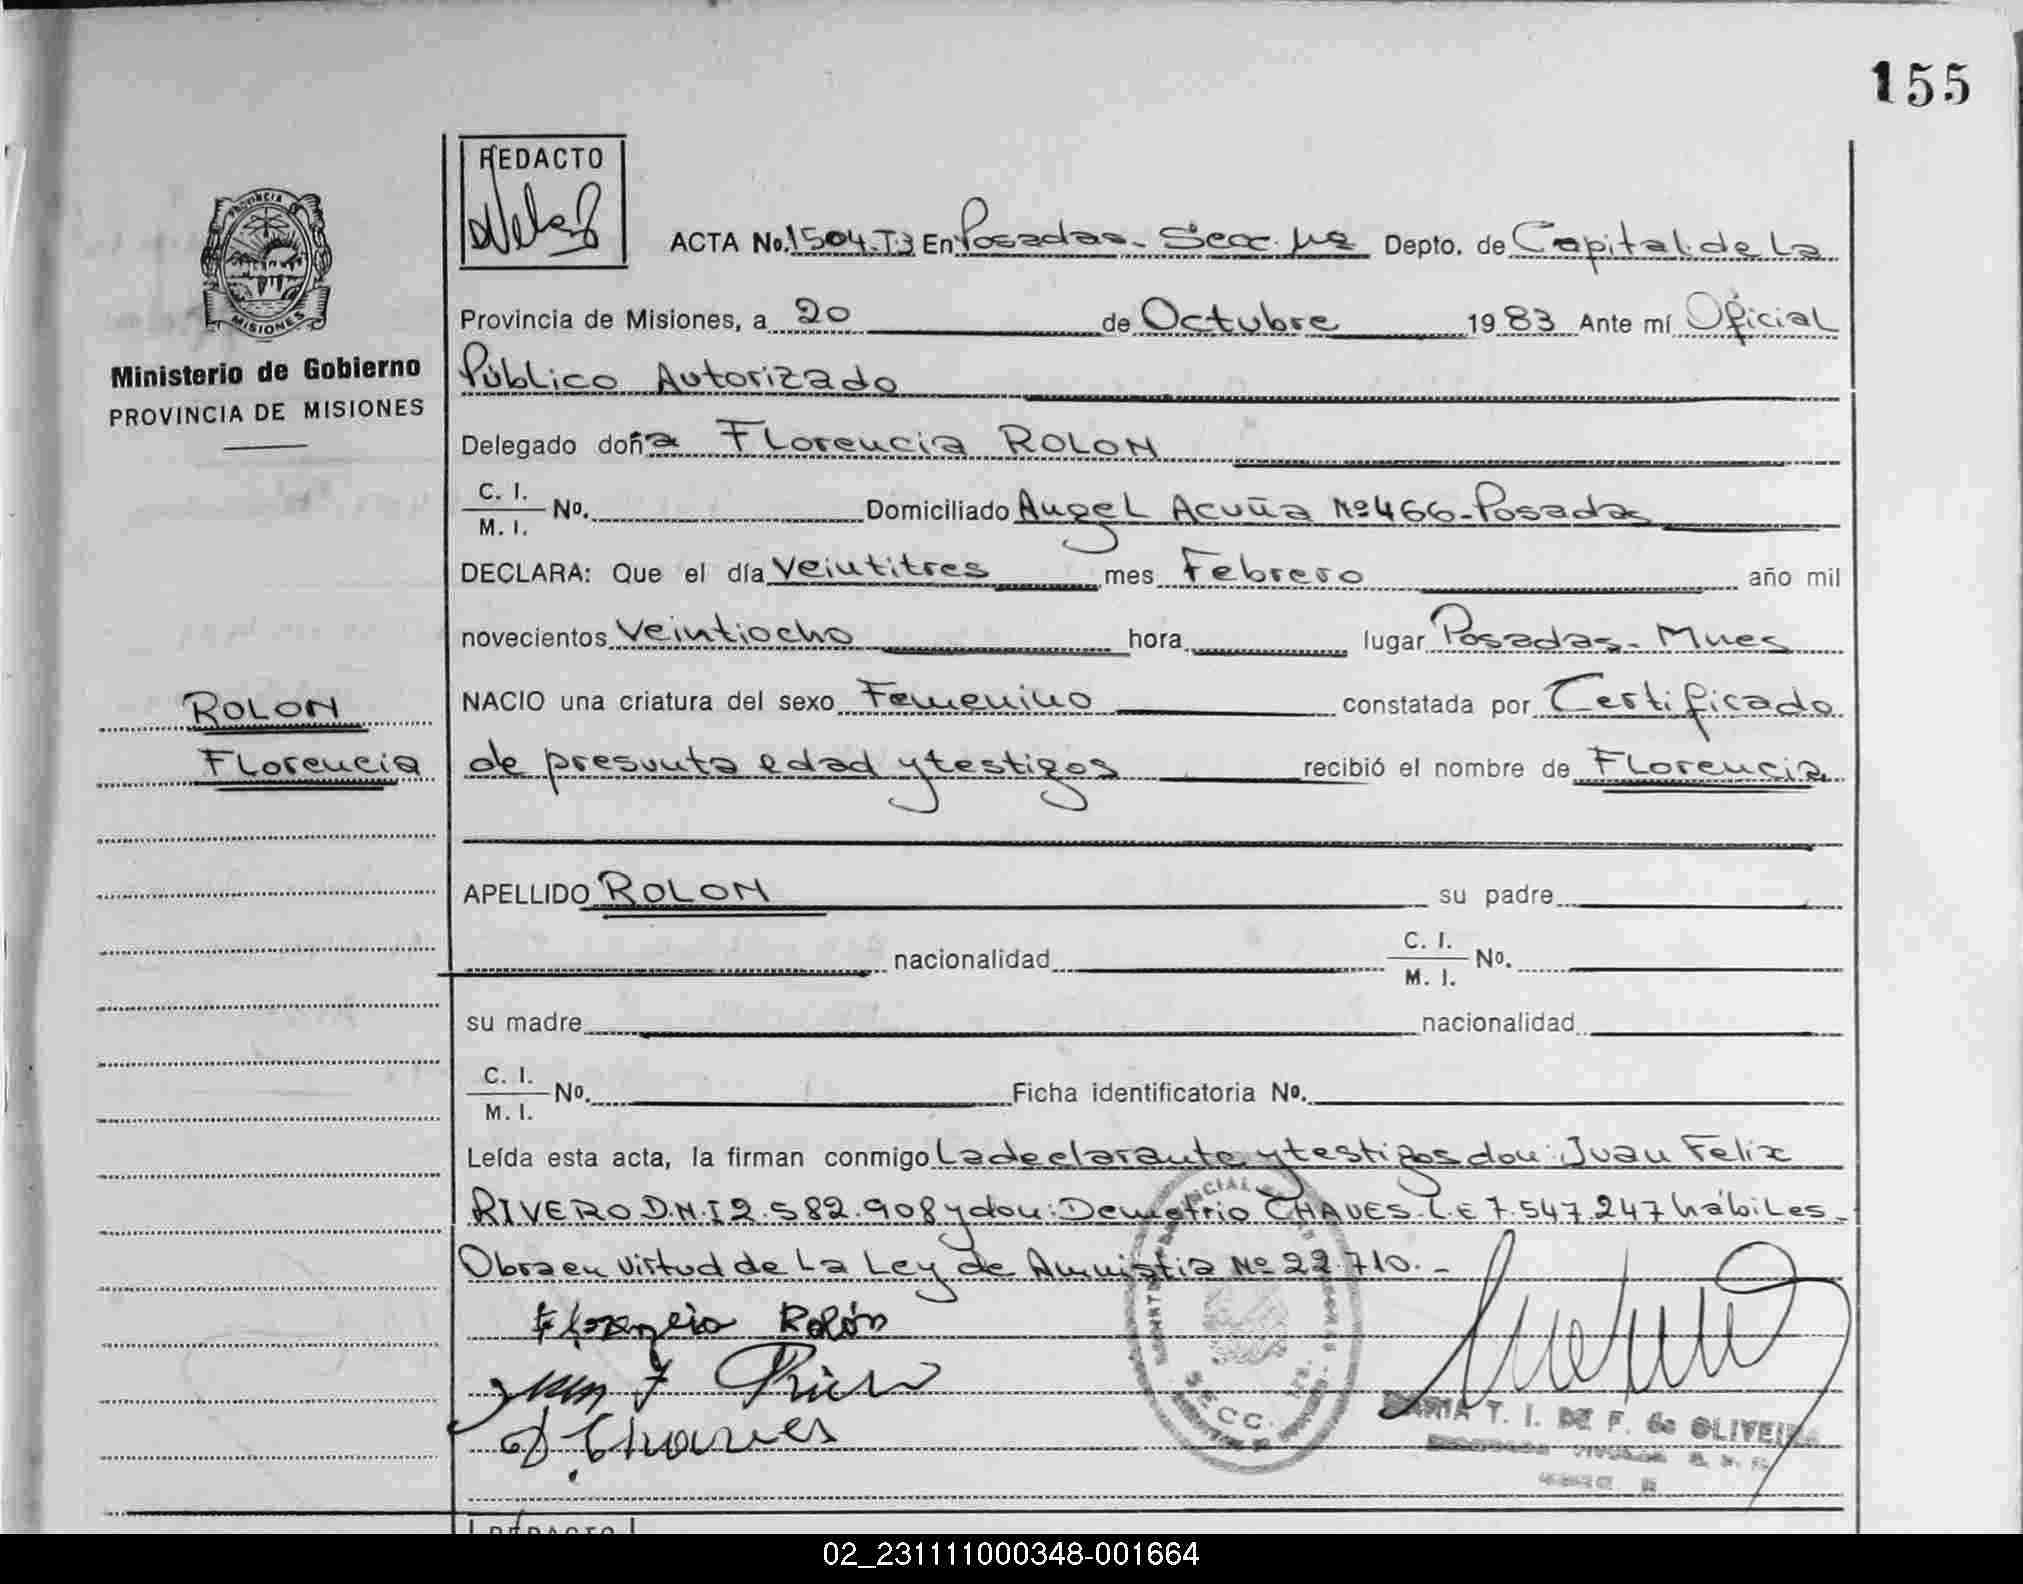 155
REDACTO
PROVINCIA DE
MISIONES
Ministerio de Gobierno
PROVINCIA DE MISIONES
ACTA No. 1504.T3 En Posadas - Secc. 1ra Depto. de Capital de La
Provincia de Misiones, a 20 de Octubre 1983 Ante mí Oficial
Público Autorizado
Delegado doña Florencia ROLON
C. I.
M. I. No. Domiciliado Angel Acuña Nº 466 - Posadas
DECLARA: Que el día Veintitres mes Febrero año mil
novecientos Veintiocho hora lugar Posadas - Mnes
NACIO una criatura del sexo Femenino constatada por Certificado
de presunta edad y testigos recibió el nombre de Florencia
ROLON
Florencia
APELLIDO ROLON su padre
nacionalidad C. I.
M. I. No.
su madre nacionalidad
C. I.
M. I. No. Ficha identificatoria No.
Leída esta acta, la firman conmigo La declarante y testigos don: Juan Felix
RIVERO D.N.I 2.582.908 y don: Demetrio CHAVES L.E 7.547.247 hábiles -
Obra en virtud de La Ley de Amnistia Nº 22.710. -
Florencia Rolón
Juan F Rivero
D. Chaves
SECC. 1ra.
MARIA T. I. DE F. de OLIVEIRA
REDACTO
02_231111000348-001664